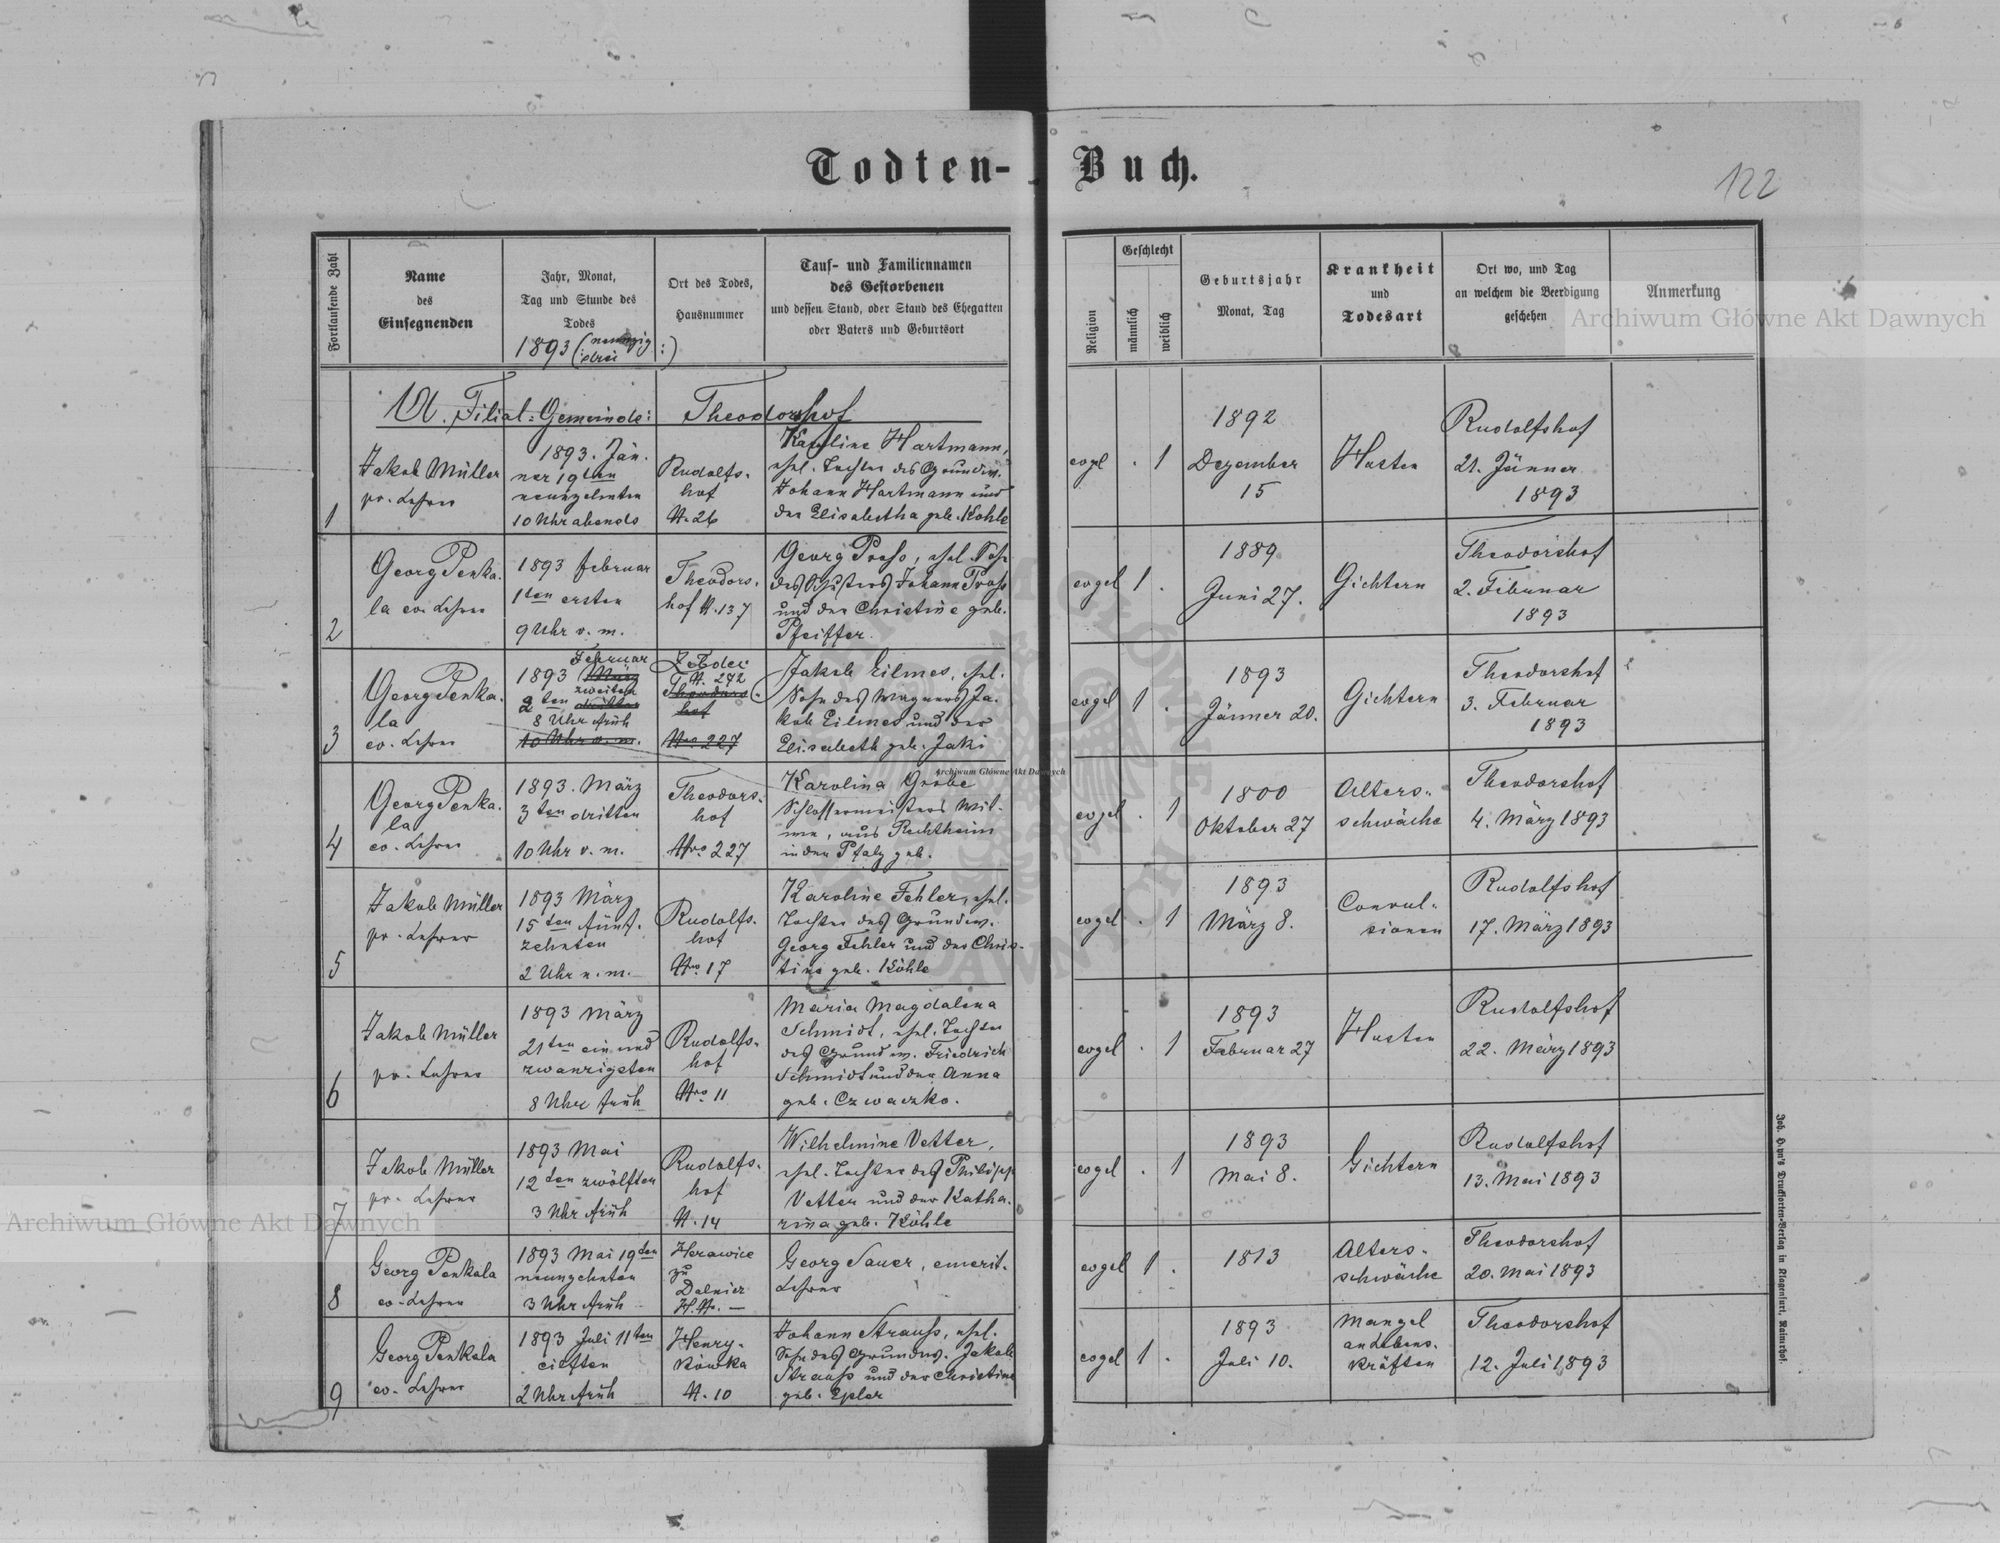 Todten- Buch.
122
Fortlaufende Zahl
Name
des
Einsegnenden
Jahr, Monat,
Tag und Stunde des
Todes
1893 (neunzig
drei :)
Ort des Todes,
Hausnummer
Tauf- und Familiennamen
des Gestorbenen
und dessen Stand, oder Stand des Ehegatten
oder Vaters und Geburtsort
Religion
Geschlecht
männlich
weiblich
Geburtsjahr
Monat, Tag
Krankheit
und
Todesart
Ort wo, und Tag
an welchem die Beerdigung
geschehen
Anmerkung
Archiwum Główne Akt Dawnych
Filial-Gemeinde: Theodorshof
1
Jakob Müller
pr. Lehrer
1893. Jän.
ner 19ten
neunzehnten
10 Uhr abends
Rudolfs-
hof
N. 26
Karoline Hartmann,
ehel. Tochter des Grundw.
Johann Hartmann und
der Elisabetha geb. Köhle
evgl . 1
1892
Dezember
15
Husten
Rudolfshof
21. Jänner
1893
2
Georg Penka.
la ev. Lehrer
1893 februar
1ten ersten
9 Uhr v. m.
Theodors.
hof N. 137
Georg Pross, ehel. Sohn
des Johann Pross
und der Christine geb.
Pfeiffer.
evgel 1 .
1889
Juni 27.
Gichtern
Theodorshof
2. Februar
1893
3
Georg Penka.
la
ev. Lehrer
Februar
1893 März
zweiten
2ten dritten
8 Uhr früh
10 Uhr v. m.
N. 272
Theodors-
hof
Nro 227
Jakob Eilmes, ehel.
Sohn des Wagners Ja.
kob Eilmes und der
Elisabeth geb. Jaki
evgel 1 .
1893
Jänner 20.
Gichtern
Theodorshof
3. Februar
1893
4
Georg Penka.
la
ev. Lehrer
1893. März
3ten dritten
10 Uhr v. m.
Theodors.
hof
Nro 227
Karolina Grobe
Schlossermeisters Wit-
we, aus
in der Pfalz geb.
Archiwum Główne Akt Dawnych
evgel . 1
1800
Oktober 27
Alters-
schwäche
Theodorshof
4. März 1893
5
Jakob Müller
pr. Lehrer
1893 März
15ten fünf.
zehnten
2 Uhr n. m.
Rudolfs.
hof
Nro 17
Karoline Fehler, ehel.
Tochter des Grundw.
Georg Fehler und der Chris-
tine geb. Köhle
evgel . 1
1893
März 8.
Convul-
sionen
Rudolfshof
17. März 1893
6
Jakob Müller
pr. Lehrer
1893 März
21ten ein und
zwanzigsten
8 Uhr früh
Rudolfs-
hof
Nro 11
Maria Magdalena
Schmidt, ehel. Tochter
des Grundw. Friedrich
Schmidt und der Anna
geb. Czwaczko.
evgel . 1
1893
Februar 27
Husten
Rudolfshof
22. März 1893
7
Jakob Müller
pr. Lehrer
1893 Mai
12ten zwölften
3 Uhr früh
Rudolfs.
hof
N. 14
Wilhelmine Vetter,
ehel. Tochter des Philipp
Vetter und der Katha.
rina geb. Köhle
evgel . 1
1893
Mai 8.
Gichtern
Rudolfshof
13. Mai 1893
Archiwum Główne Akt Dawnych
8
Georg Penkala
ev. Lehrer
1893 Mai 19ten
neunzehnten
3 Uhr früh
zu
H.N. —
Georg Sauer, emerit.
Lehrer
evgel 1 .
1813
Alters-
schwäche
Theodorshof
20. Mai 1893
9
Georg Penkala
ev. Lehrer
1893 Juli 11ten
eilften
2 Uhr früh
Henry-
kówka
N. 10
Johann Strauss, ehel.
Sohn des Grundw. Jakob
Strauss und der Christine
geb. Epler
evgel 1 .
1893
Juli 10.
Mangel
an Lebens.
kräften
Theodorshof
12. Juli 1893
Joh. Heyn's Drucksorten-Verlag in Klagenfurt, Rainerhof.